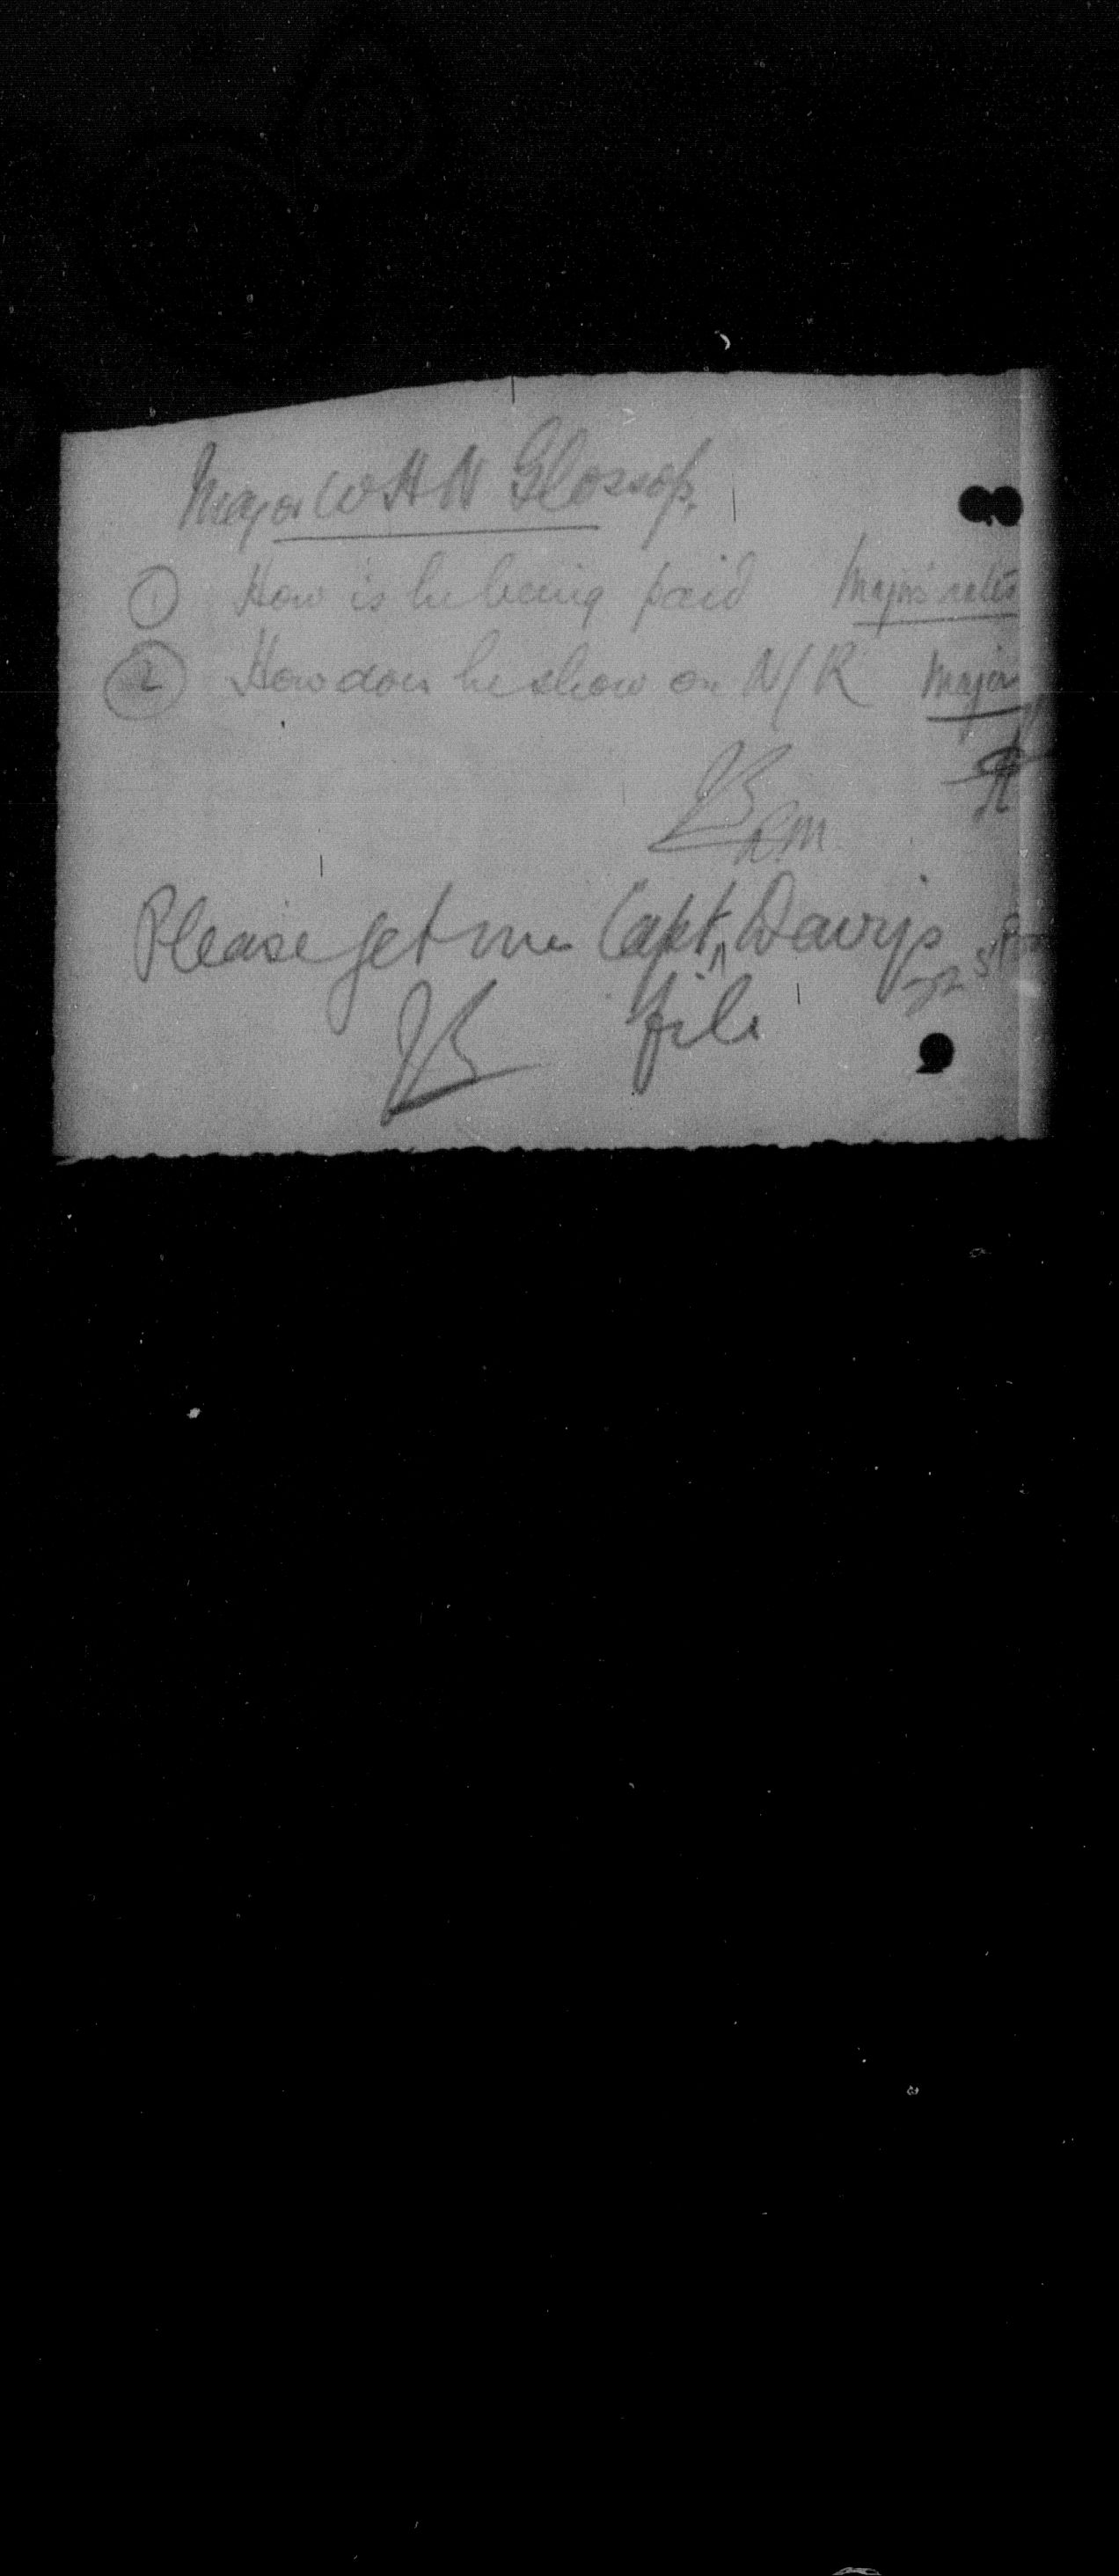 Major W H N Glossop.
① How is he being paid Major's rates
② How does he show on N/R Major
R.M.
Please get me Capt. Davys
file